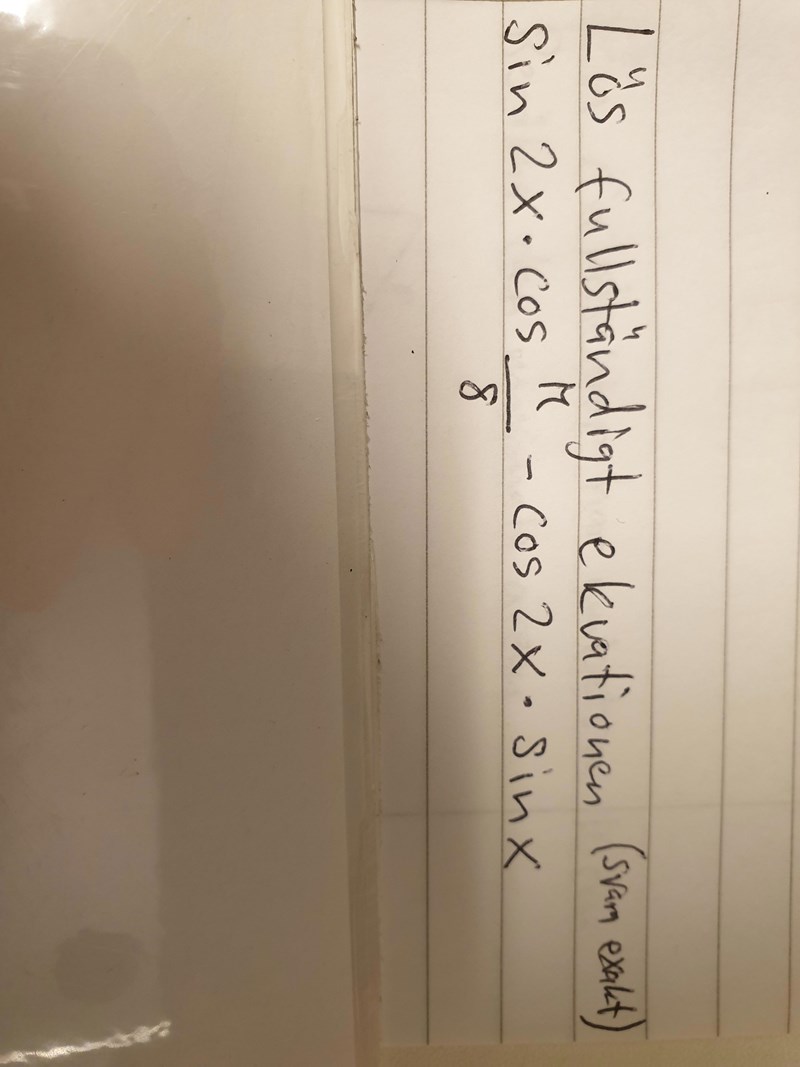 Lös fullständigt ekvationen (svara exakt)
sin 2x · cos π/8 - cos 2x · sin x